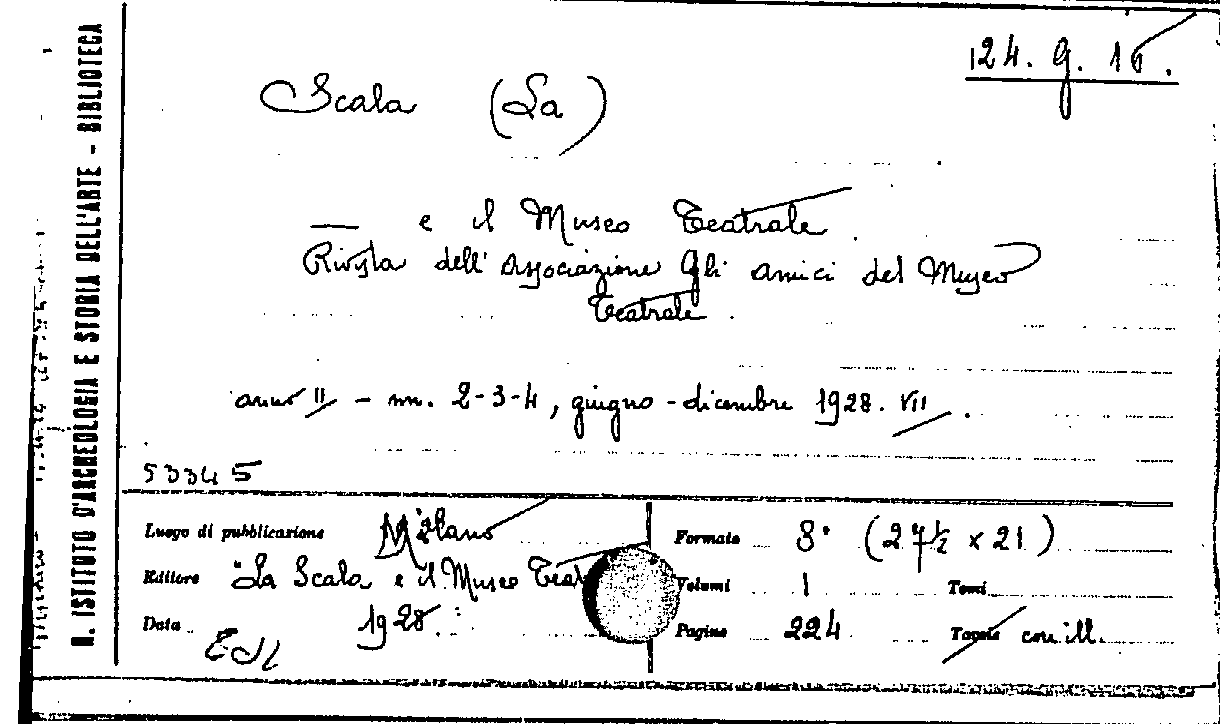 124. g. 16.
Scala (La)
— e il Museo Teatrale.
Rivista dell'Associazione Gli amici del Museo
Teatrale.
anno II - nn. 2-3-4, giugno - dicembre 1928. VII.
53345
R. ISTITUTO D'ARCHEOLOGIA E STORIA DELL'ARTE - BIBLIOTECA
Luogo di pubblicazione Milano
Editore "La Scala e il Museo Teat
Data 1928.
Formato 8° (27½ x 21)
Volumi 1 Tomi
Pagine 224 Tavole con ill.